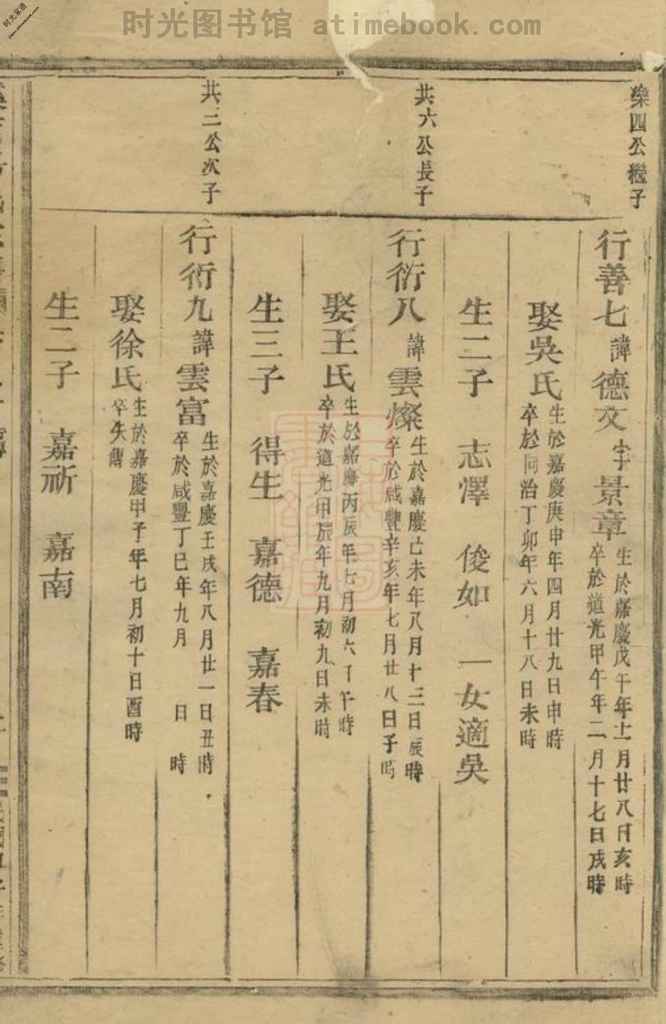 时光图书馆 atimebook.com
榮四公繼子
行善七 諱德文 字景章 生於嘉慶戊午年十一月廿八日亥時
卒於道光甲午年二月十七日戌時
娶吳氏 生於嘉慶庚申年四月廿九日申時
卒於同治丁卯年六月十八日未時
生二子 志澤 俊如 一女適吳
共六公長子
行衍八 諱雲燦 生於嘉慶己未年八月十三日辰時
卒於咸豐辛亥年七月廿八日子時
娶王氏 生於嘉慶丙辰年七月初六丁午時
卒於道光甲辰年九月初九日未時
生三子 得生 嘉德 嘉春
共二公次子
行衍九 諱雲富 生於嘉慶壬戌年八月廿一日丑時
卒於咸豐丁巳年九月 日 時
娶徐氏 生於嘉慶甲子年七月初十日酉時
卒失傳
生二子 嘉祈 嘉南